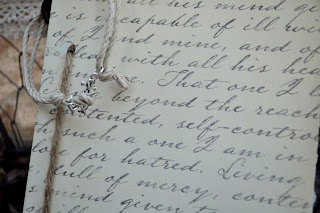 all his mind gi
is incapable of ill wi
of I and mine, and of
with all his hea
That one I l
beyond the reach
contented, self-contro
such a one I am in
love for hatred. Living
full of mercy, conten
mind given t